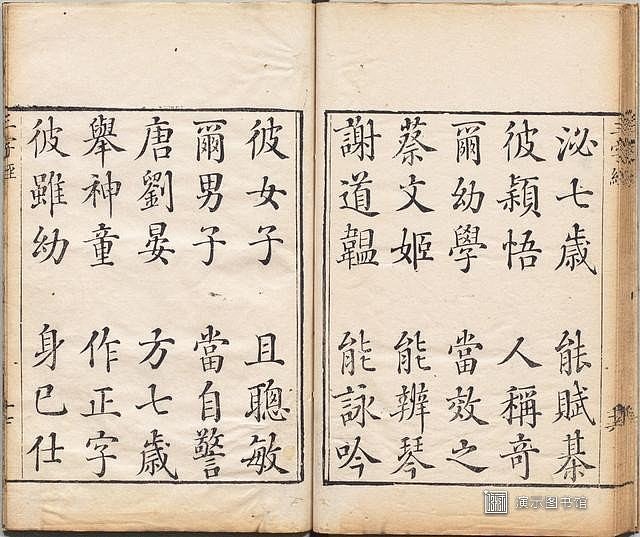 泌七歲 能賦棊
彼穎悟 人稱奇
爾幼學 當效之
蔡文姬 能辨琴
謝道韞 能詠吟
彼女子 且聰敏
爾男子 當自警
唐劉晏 方七歲
舉神童 作正字
彼雖幼 身已仕
三字經
三字經
演示图书馆